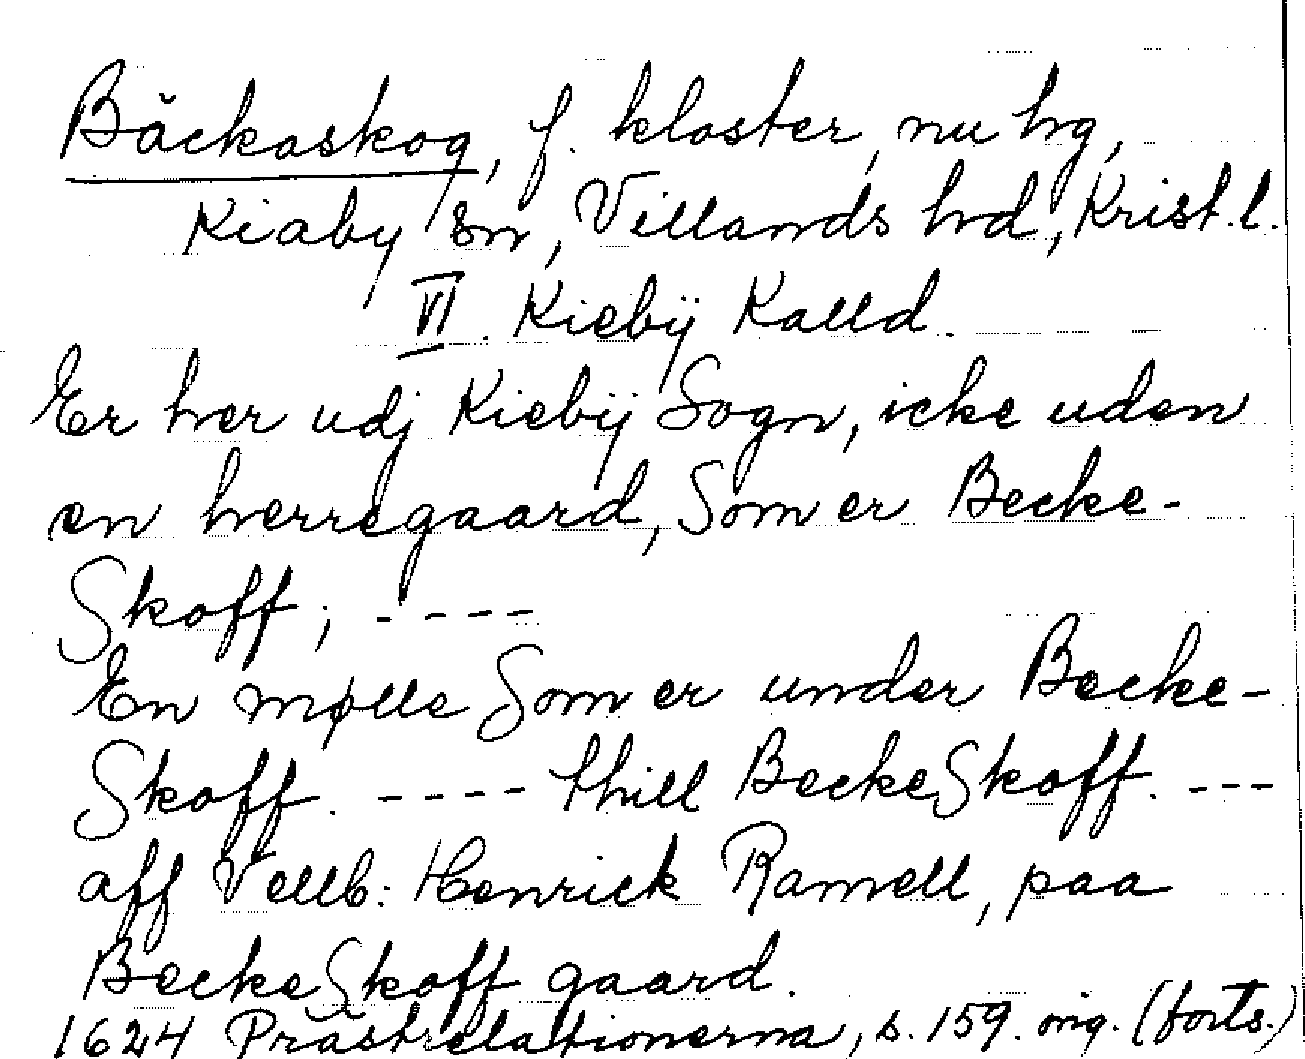 Bäckaskog, f. kloster, nu hg,
Kiaby sn, Villands hd, Krist. l.
VI. Kiebÿ Kalld.
Er her udj Kiebÿ Sogn, icke uden
en herregaard, Som er Becke-
Skoff; - - - -
En mølle Som er under Becke-
Skoff. - - - - thill BeckeSkoff. - - -
aff Vellb: Henrick Ramell, paa
BeckeSkoff gaard.
1624 Prästrelationerna, s. 159. orig. (forts.)